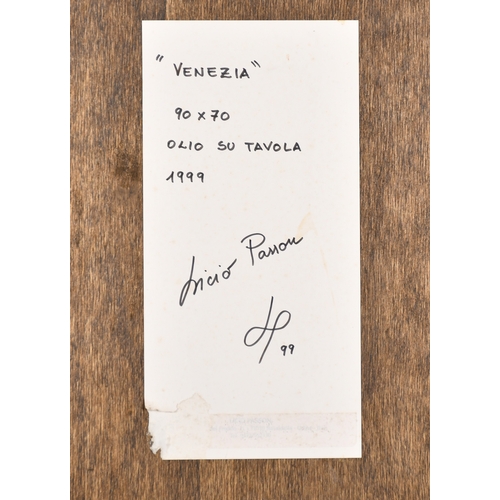 "VENEZIA"
90 x 70
OLIO SU TAVOLA
1999
Licio Passon
LP 99